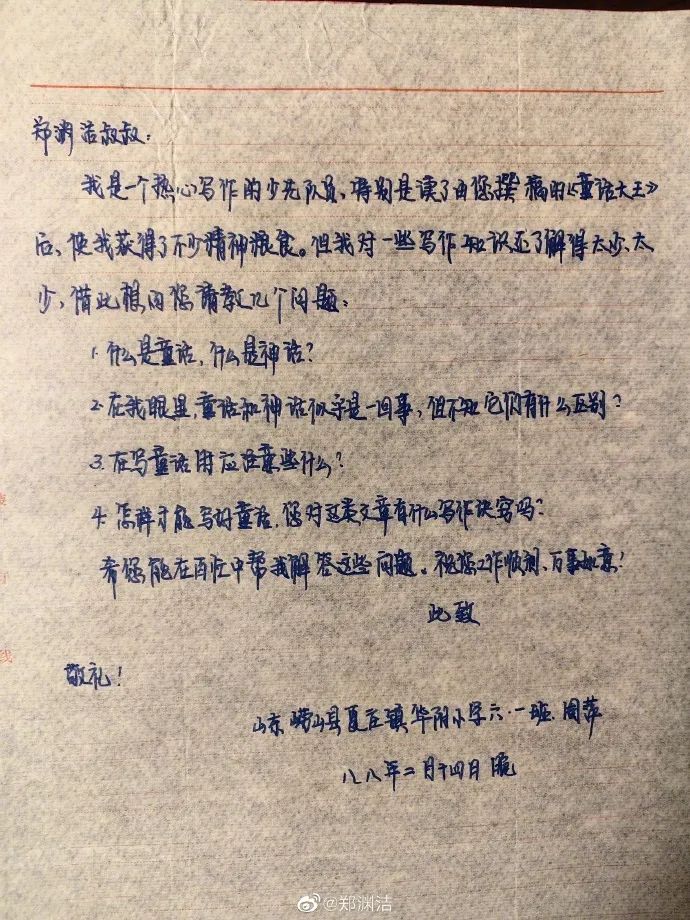 郑渊洁叔叔：
我是一个热心写作的少先队员，特别是读了由您撰稿的《童话大王》
后，使我获得了不少精神粮食。但我对一些写作知识还了解得太少、太
少，借此想向您请教几个问题：
1. 什么是童话，什么是神话？
2. 在我眼里，童话和神话似乎是一回事，但不知它们有什么区别？
3. 在写童话时应注意些什么？
4. 怎样才能写好童话，您对这类文章有什么写作诀窍吗？
希您能在百忙中帮我解答这些问题。祝您工作顺利、万事如意！
此致
敬礼！
山东崂山县夏庄镇华阴小学六·一班 周萍
八八年二月十四日晚
@郑渊洁